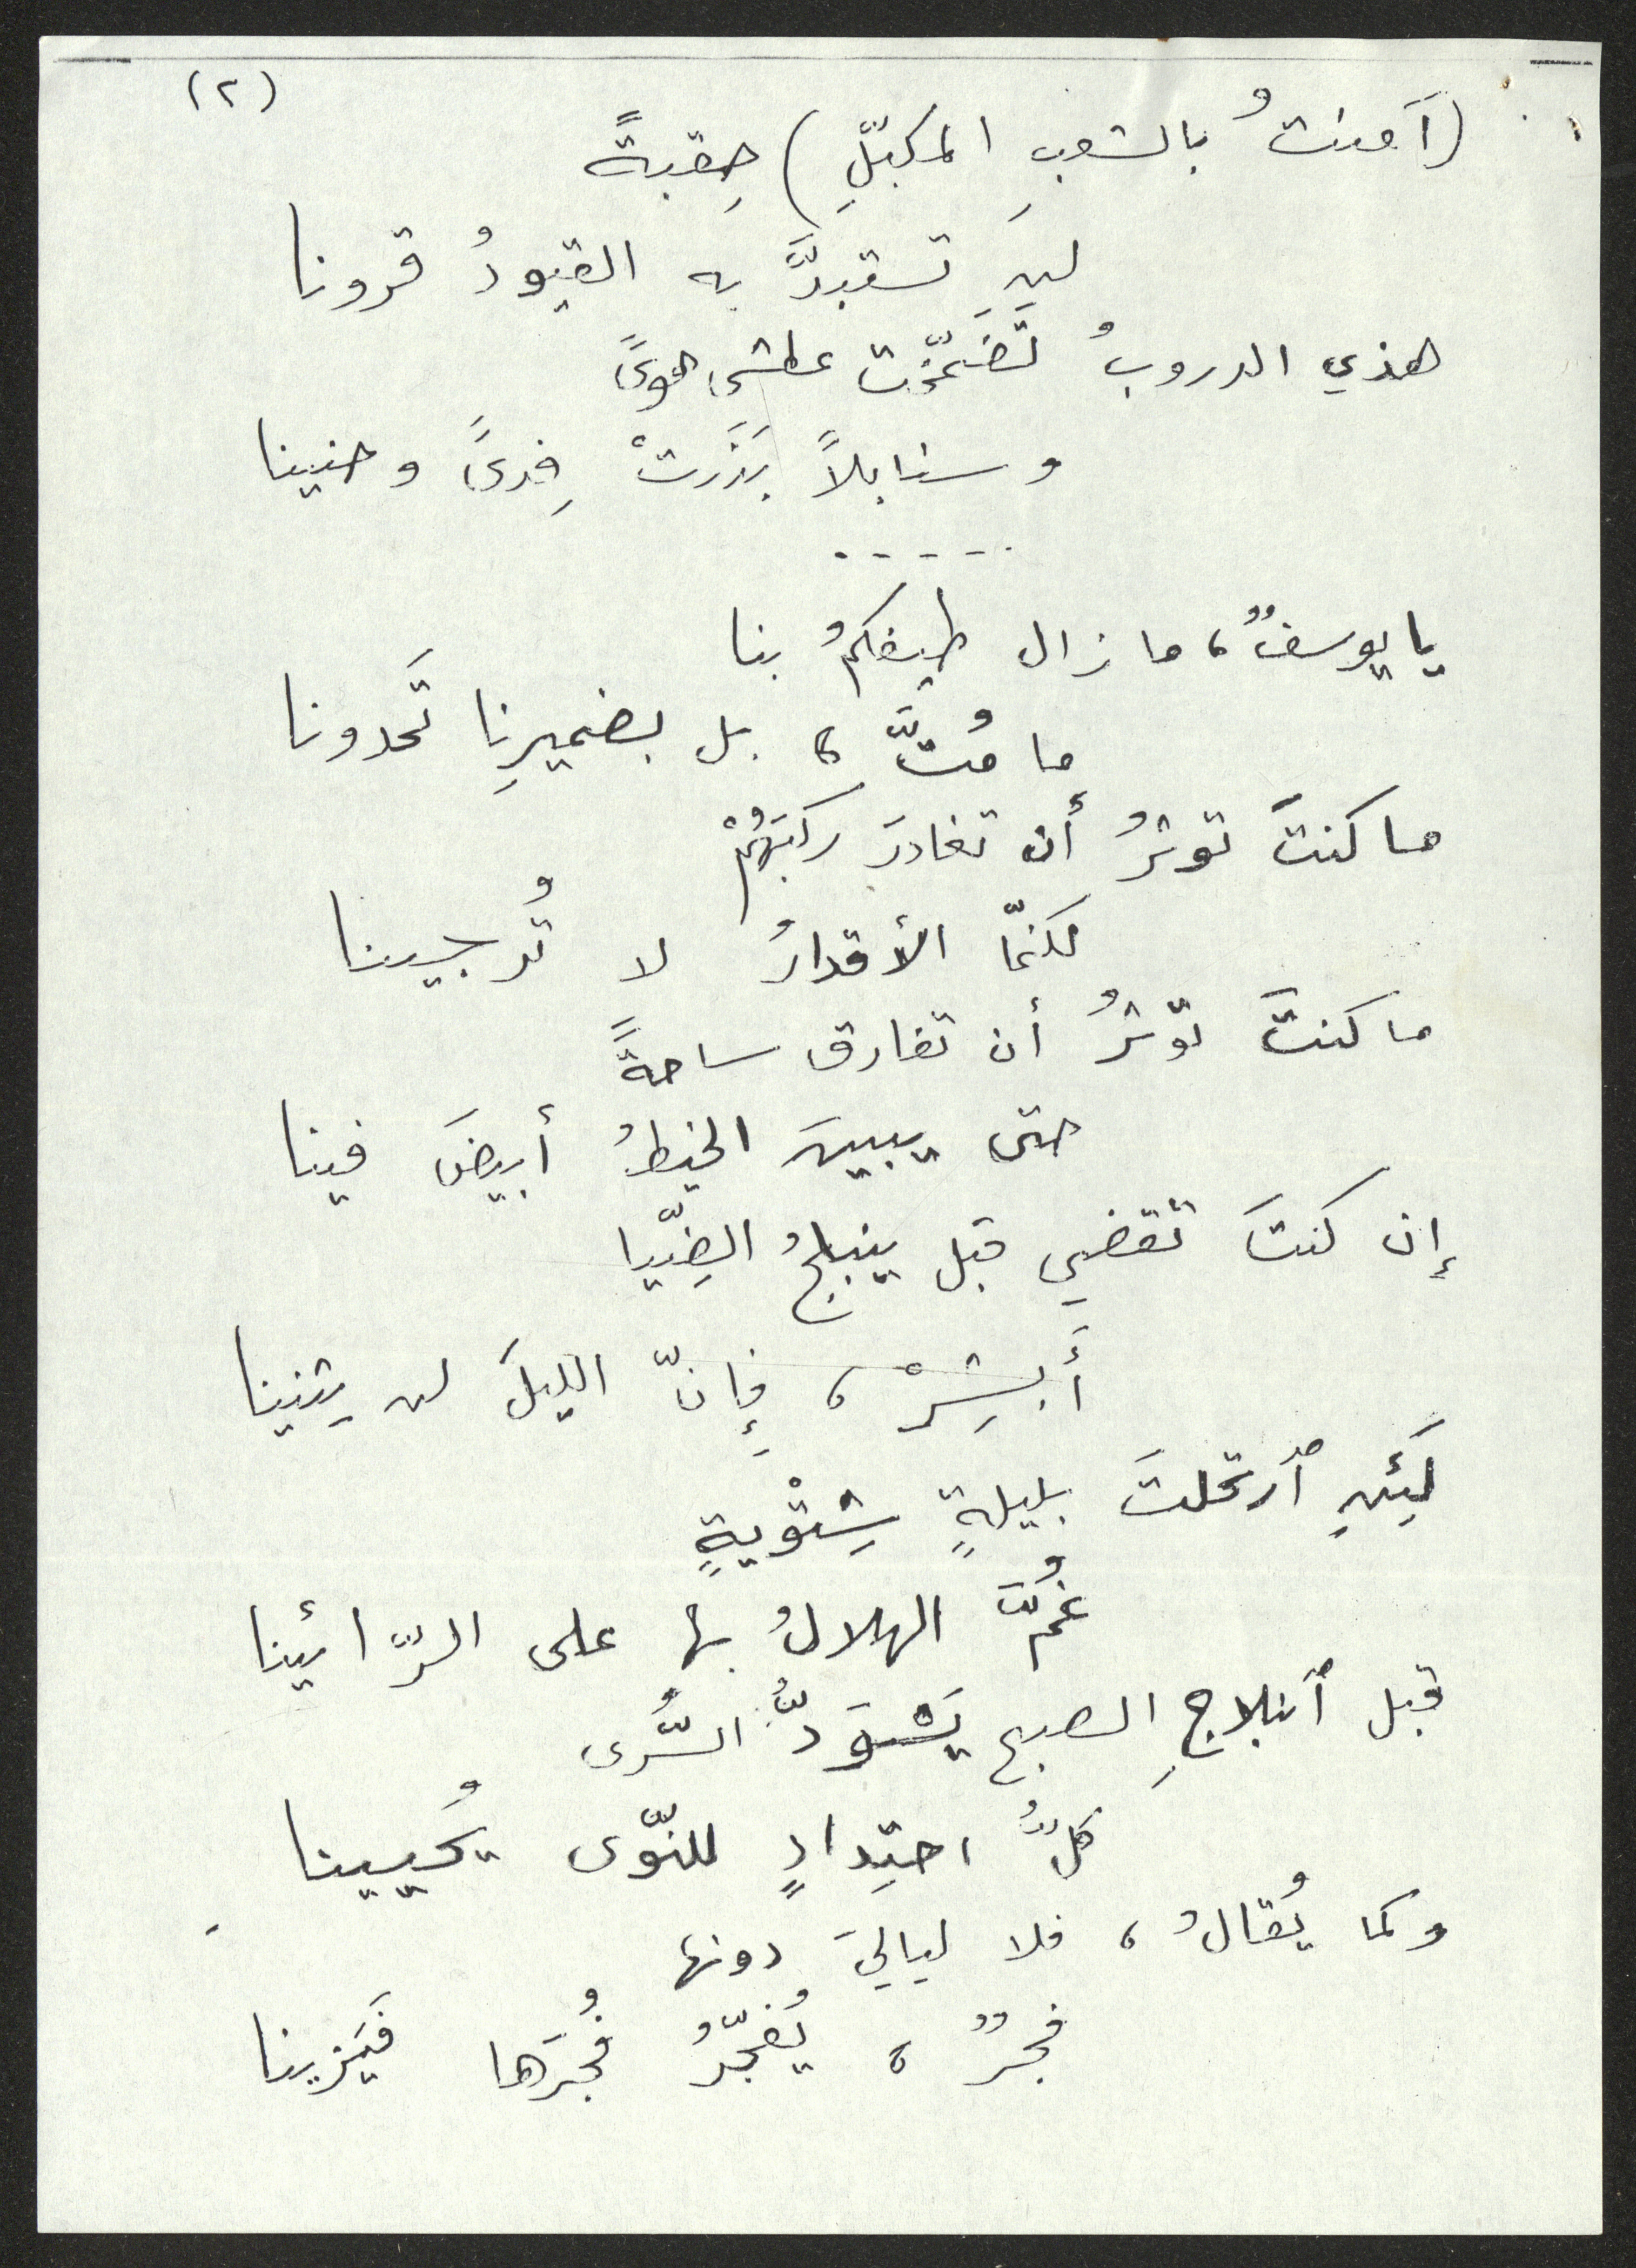 (٢)
(آمنتُ بالشعبِ المكبّلِ) حِقبةً
لن تستبدَّ به القيودُ قرونا
هذي الدروبُ تَضَمّخت عطشى هوىً
وسنابلاً بَذَرتْ فِدىً وحنينا
يا يوسفٌ، ما زال طيفكمُ بنا
ما مُتَّ، بل بضميرِنا تَحدونا
ما كنتَ تؤثرُ أن تغادرَ ركبَهُمْ
لكنّما الأقدارُ لا تُرجينا
ما كنتَ تؤثرُ أن تفارق ساحةً
حتى يبينَ الخيطُ أبيضَ فينا
إن كنتَ تقضي قبل ينبلجُ الضِّيا
أَبشِرْ، فإِنّ الليلَ لن يثنينا
لَئِنِ ٱرتحلتَ بليلةٍ شِتْويةٍ
غُمَّ الهلالُ بها على الرّائينا
قبل ٱنبلاجِ الصبح يَسْوَدُّ السُّرى
كلُّ احتِدادٍ للنّوى يُحيينا
وكما يُقالُ، فلا لياليَ دونها
فجرٌ، يُفجّرُ فُجرَها فيَزينا